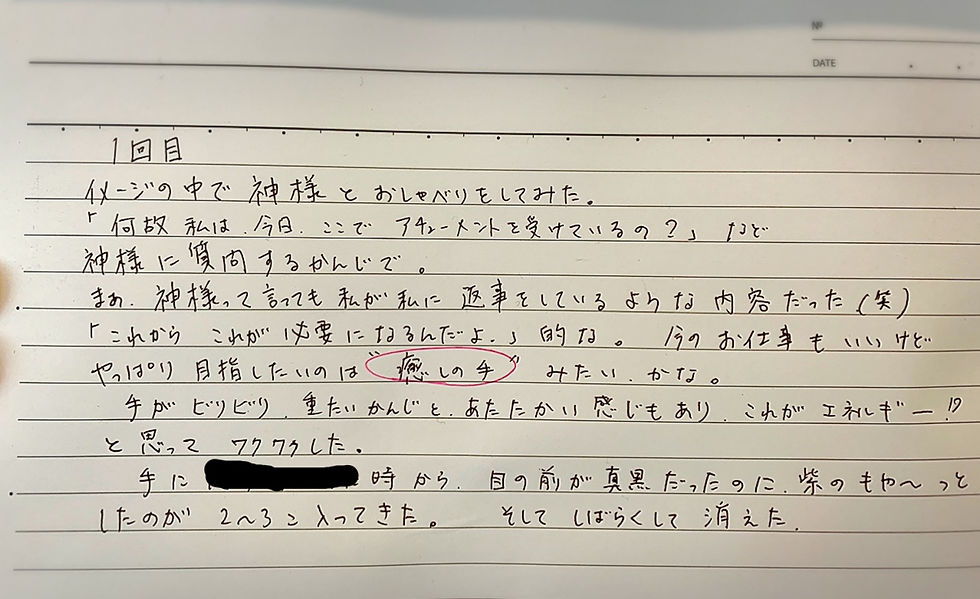 Nº
DATE
1回目
イメージの中で神様とおしゃべりをしてみた。
「何故私は、今日、ここでアチューメントを受けているの？」など
神様に質問するかんじで。
まぁ、神様って言っても私が私に返事をしているような内容だった(笑)
「これからこれが必要になるんだよ。」的な。 今のお仕事もいいけど
やっぱり目指したいのは“癒しの手”みたい、かな。
手がビリビリ、重たいかんじと、あたたかい感じもあり、これがエネルギー!?
と思ってワクワクした。
手に 時から、目の前が真黒だったのに、紫のもや〜っと
したのが2〜3こ入ってきた。 そしてしばらくして消えた。